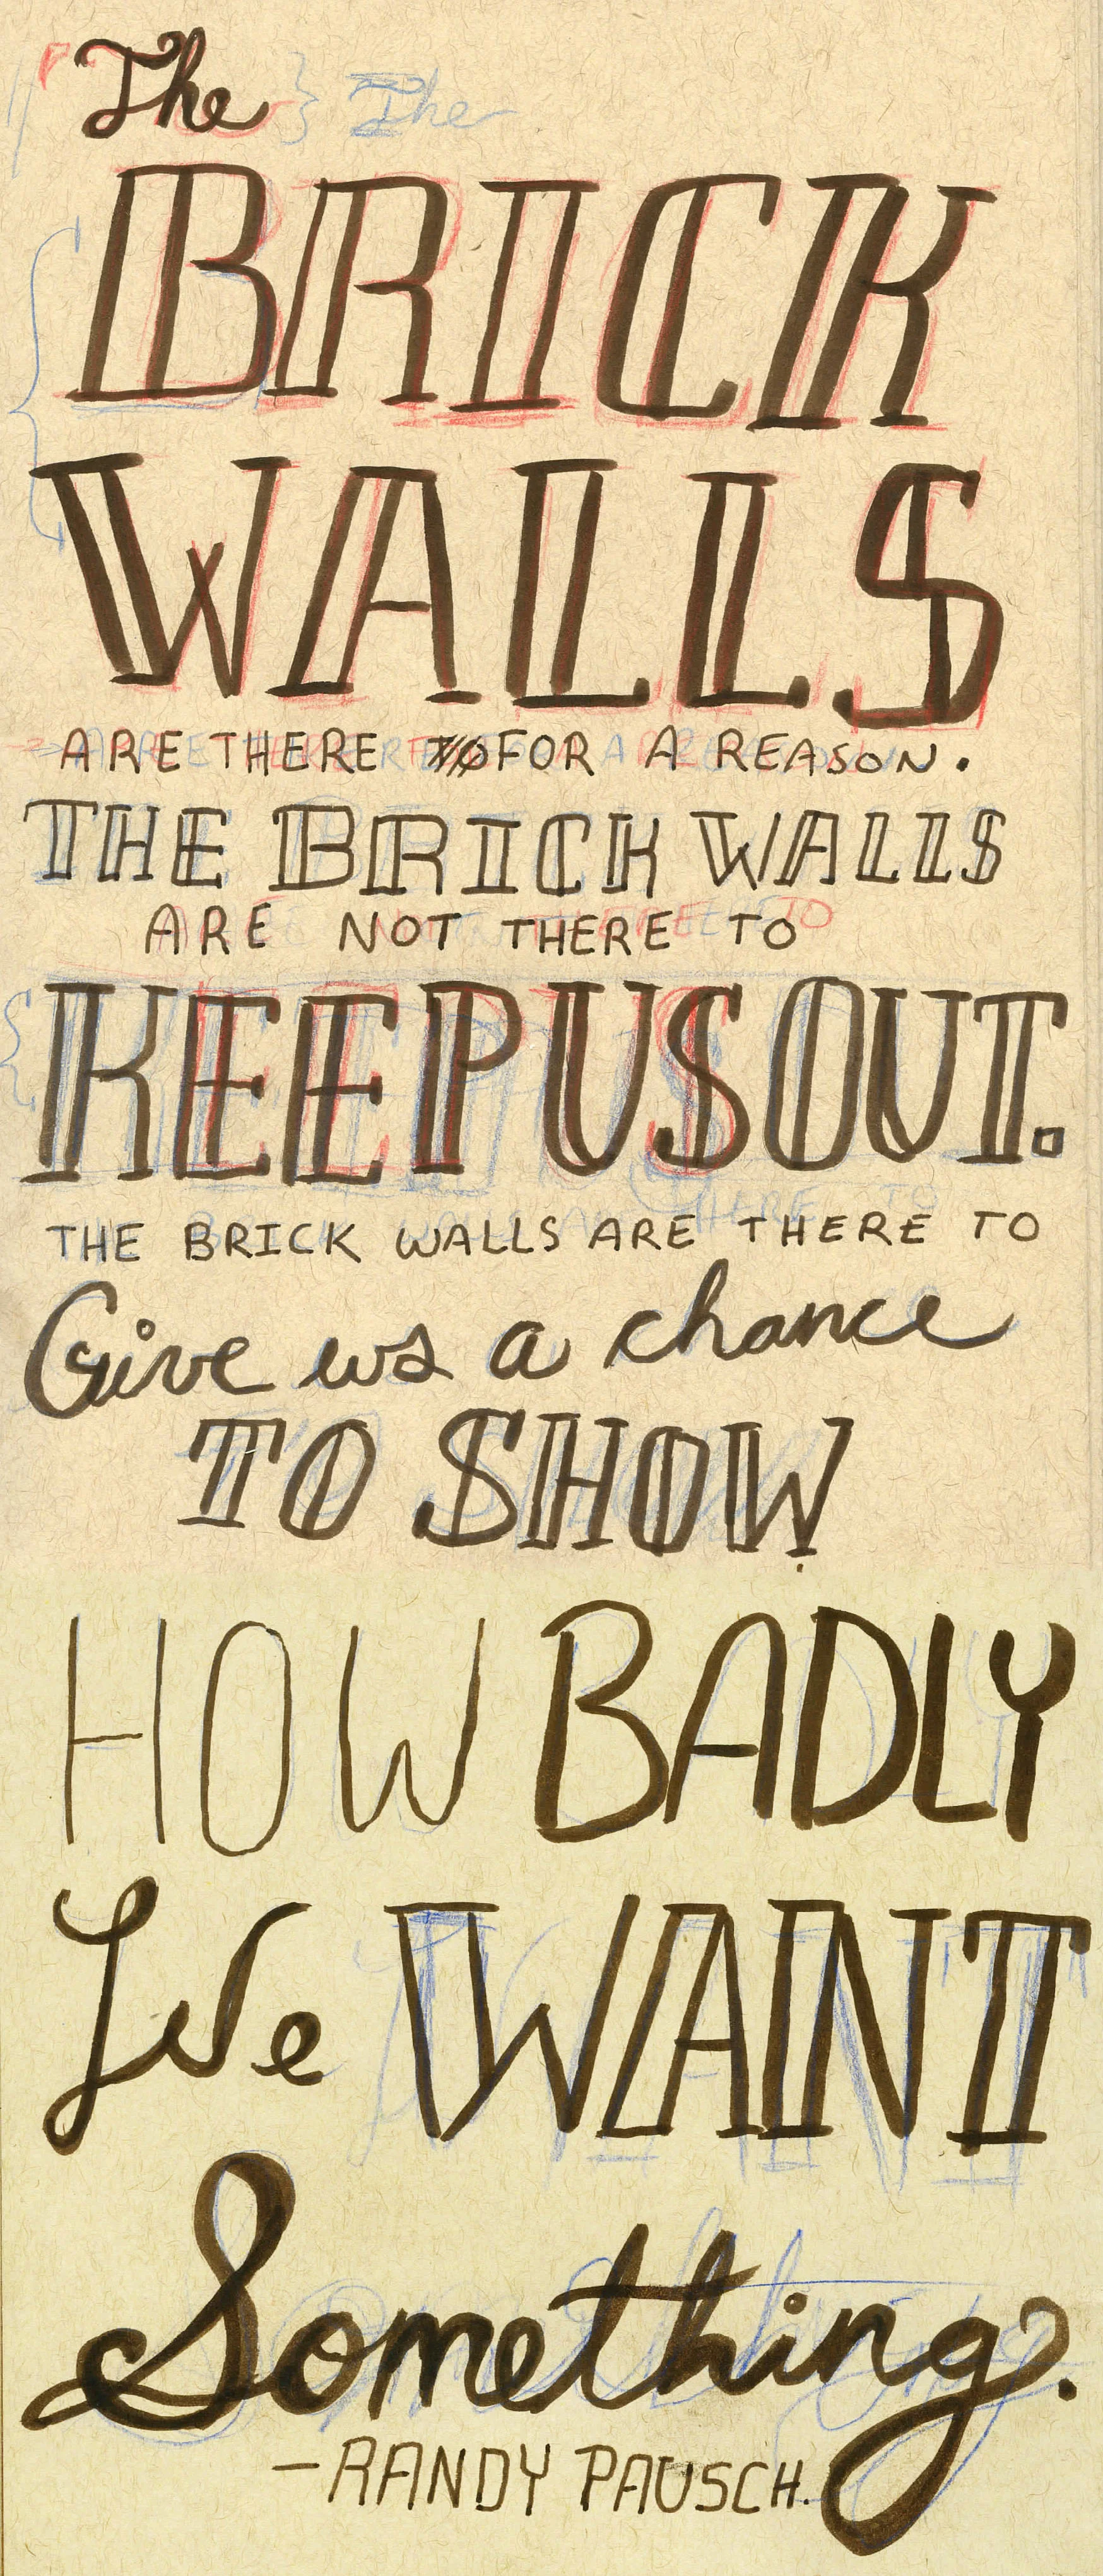 The
BRICK
WALLS
ARE THERE FOR A REASON.
THE BRICK WALLS
ARE NOT THERE TO
KEEP US OUT.
THE BRICK WALLS ARE THERE TO
Give us a chance
TO SHOW
HOW BADLY
We WANT
Something.
-RANDY PAUSCH.